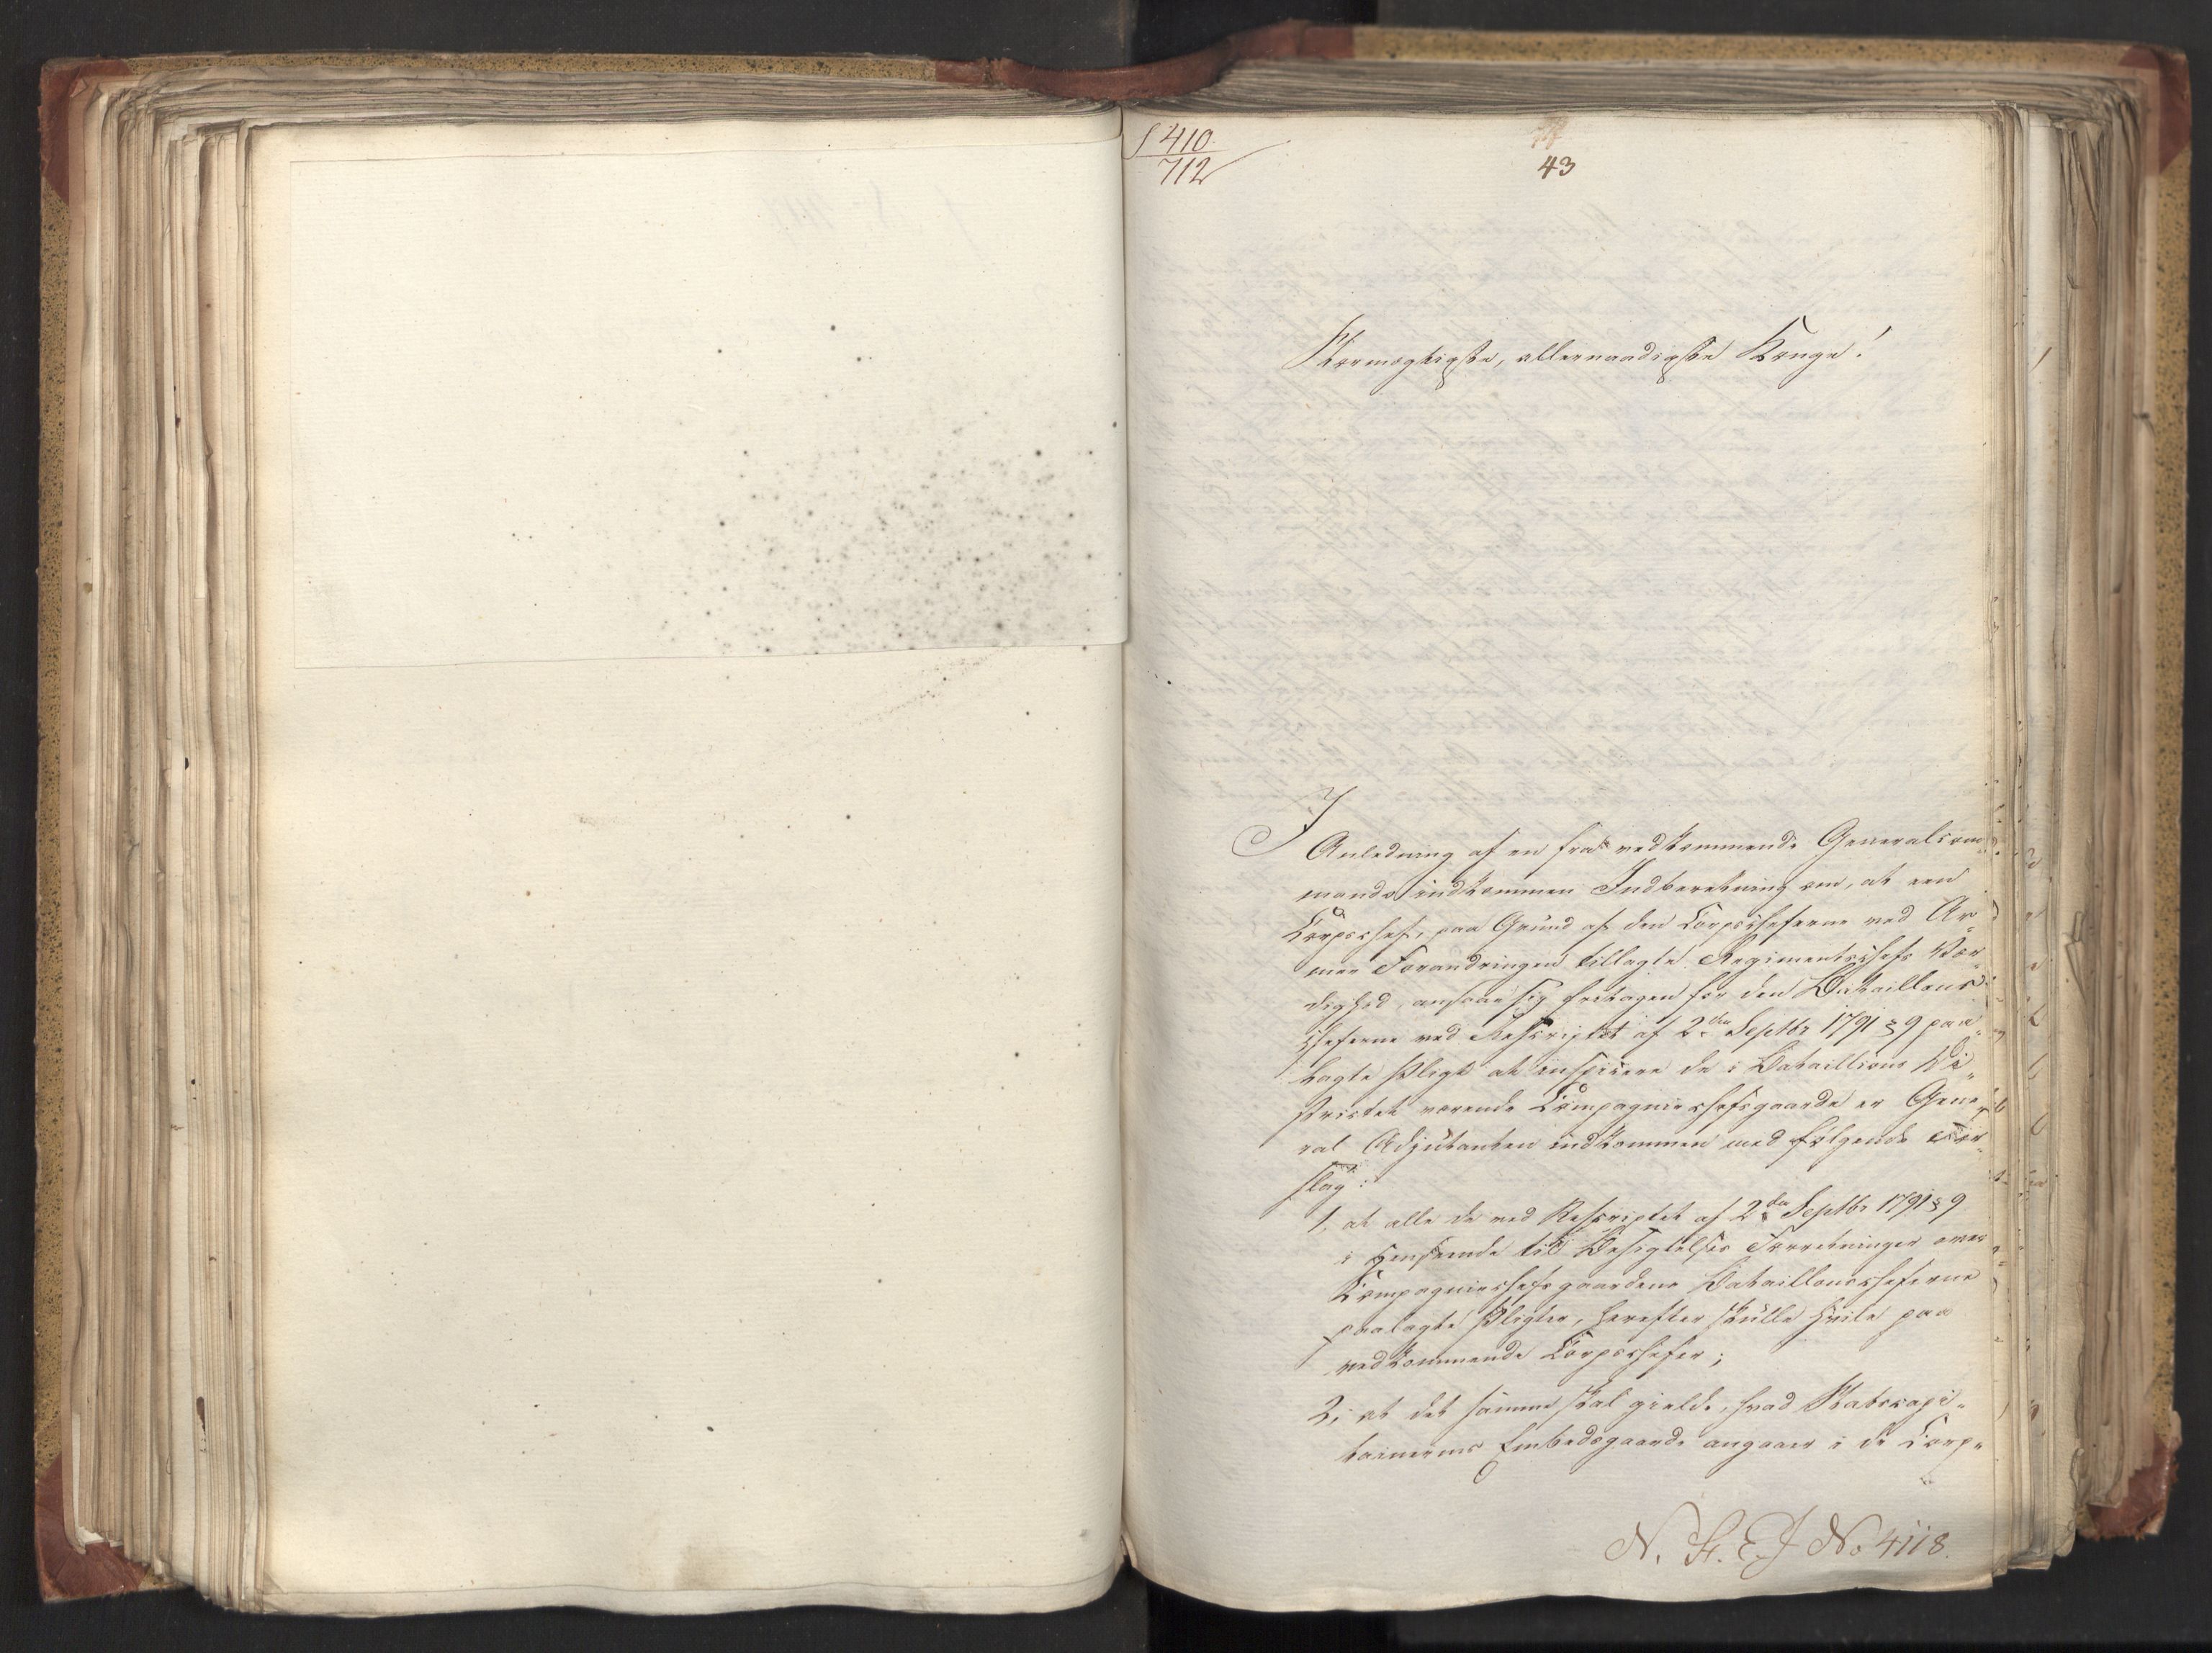 S 410
712
43
Stormægtigste, allernaadigste Konge!
I
Anledning af en fra vedkommende Generalcom¬
mando indkommen Indberetning om, at een
Corpschef, paa Grund af den Corpscheferne ved Ar¬
mee Forandringen tillagte Regimentschefs Vær¬
dighed, ansaae sig fritagen for den Bataillons¬
cheferne ved Rescriptet af 2den Septbr 1791 § 9 paa¬
lagte Pligt at inspicere de i Bataillions Di¬
strictet værende Compagniechefsgaarde er Gene¬
ral Adjutanten indkommen med følgende For¬
slag:
1, at alle de ved Rescriptet af 2den Septbr 1791 § 9
i Henseende til Besigtelses Forretninger over
Compagniechefsgaardene Bataillonscheferne
paalagte Pligter, herefter skulle hvile paa
vedkommende Corpschefer;
2, at det samme skal gielde, hvad Stabscapi¬
tainernes Embedsgaarde angaaer i de Corp¬
N. H. E. J No 4118.